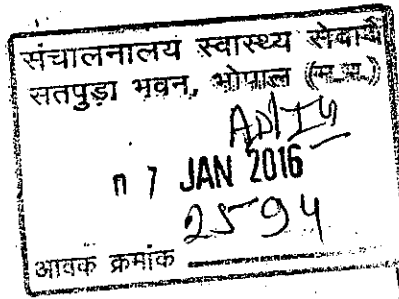 संचालनालय स्वास्थ्य सेवायें
सतपुड़ा भवन, भोपाल (म.प्र.)
07 JAN 2016
2594
आवक क्रमांक